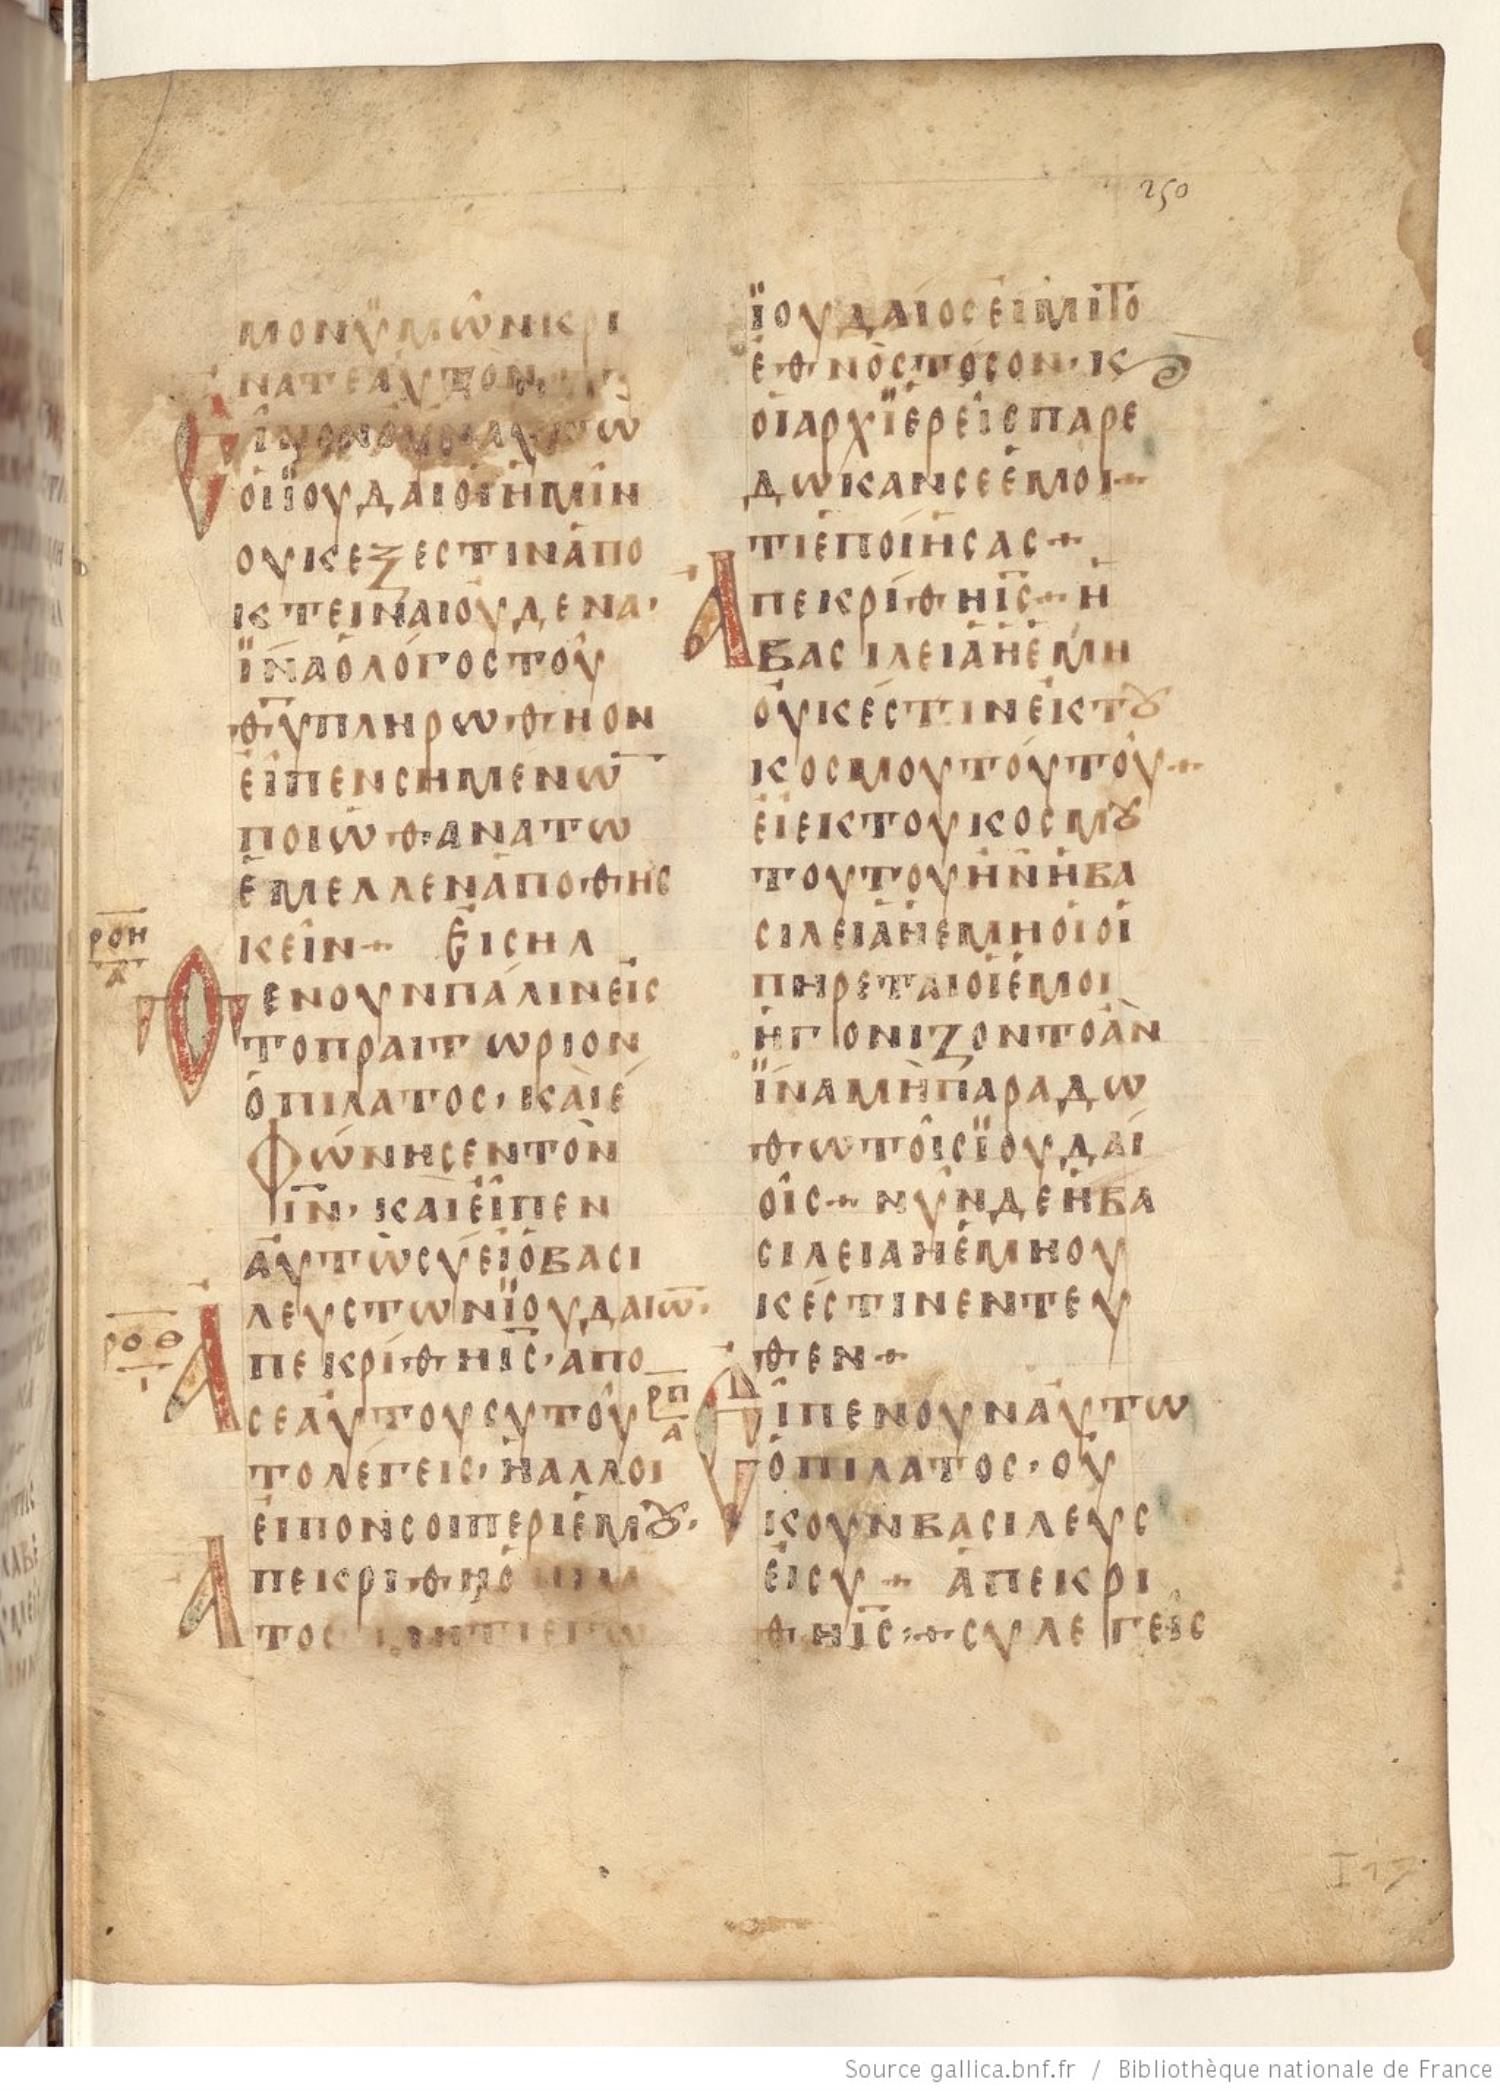 250
μονϋμῶνκρι
νατεαυτὸν
οἱϊουδαιοιἡμῖν
ουκεξεστιναπο
κτειναιουδενα·
ϊναὁλόγοςτοῦ
θ̅υ̅πληρωθηον
εἰπενσημενῶ̅
ποιωθανατω
ἐμελλεναποθνης
κεῖν+ Εἰσηλ
ρ̅ο̅η̅
α
Θενουνπάλινεἰς
τοπραιτωριον
ὁπιλατος·καὶἐ
φώνησεντὸν
ι̅ν̅·καὶεῖπεν
αυτῶσυεἶὁβασι
λευςτωνϊουδαιω̅·
ρ̅ο̅θ̅
ι
Απεκρίθηι̅ς̅·απο
σεαυτουσυτοῦ
τολέγεις·ἢαλλοι
εἰπονσοιπεριἐμȣ·
Απεκριθηὁ
τος
ϊουδαιοςεἰμιτο
ἐθνὸςτὸσον·κ
οἱαρχϊερεῖςπαρε
δωκανσεἐμοι+
τιἐποίησας+
Απεκρίθηι̅ς̅+ἡ
βασιλειαἡἐμὴ
οὐκἐστινἐκτȣ
κοσμουτούτου+
εἰεκτουκοσμȣ
τουτουἦνἡβα
σιλειαἡἐμηοἱοἱ
πηρεταιοἱἐμοι
ἠγονιζοντοἂν
ϊναμὴπαραδω
θωτοῖςϊουδαί
οις+νῦνδεἡβα
σιλειαἡἐμηου
κέστινεντευ
θεν+
ρ̅π̅
α
Εἶπενουναυτω
ὁπιλατος·οὐ
κουνβασιλευς
εἰσυ+ ἀπεκρι
θηι̅ς̅+συλεγεις
Source gallica.bnf.fr / Bibliothèque nationale de France